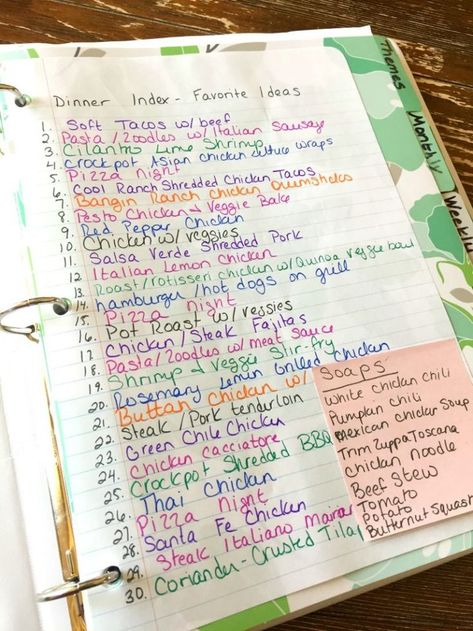 Dinner Index - Favorite Ideas
1. Soft Tacos w/ beef
2. Pasta/Zoodles w/ Italian Sausage
3. Cilantro Lime Shrimp
4. Crockpot Asian chicken lettuce wraps
5. Pizza night
6. Cool Ranch Shredded Chicken Tacos
7. Bangin Ranch chicken drumsticks
8. Pesto Chicken & Veggie Bake
9. Red Pepper Chicken
10. Chicken w/ veggies
11. Salsa Verde Shredded Pork
12. Italian Lemon Chicken
13. Roast/rotisseri chicken w/ Quinoa veggie bowl
14. hamburger/hot dogs on grill
15. Pizza night
16. Pot Roast w/ veggies
17. Chicken/Steak Fajitas
18. Pasta/Zoodles w/ meat sauce
19. Shrimp & veggie Stir-fry
20. Rosemary Lemon Grilled chicken
21. Button Chicken w/
22. Steak/Pork tenderloin
23. Green Chile Chicken
24. Chicken cacciatore
25. Crockpot Shredded BBQ
26. Thai Chicken
27. Pizza night
28. Santa Fe Chicken
29. Steak Italiano
30. Coriander-Crusted
Soaps
White chicken chili
Pumpkin chili
Mexican chicken Soup
Trim Zuppa Toscana
Chicken noodle
Beef Stew
Tomato
Potato
Butternut Squash
Themes
Monthly